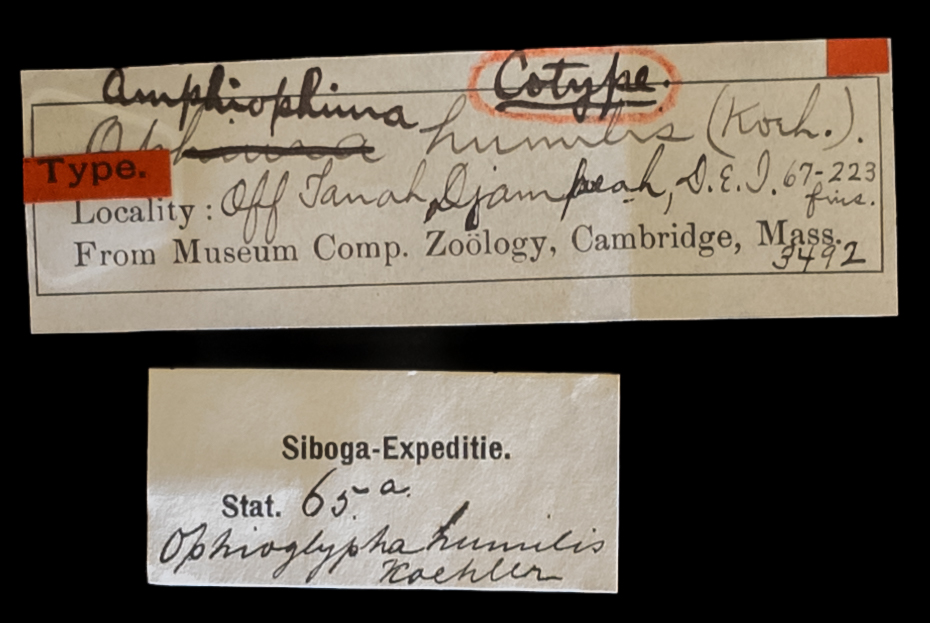 Amphiophiura Cotype.
Ophiura humilis (Koeh.).
Type.
Locality: Off Tanah Djampeah, D.E.I. 67-223 fms.
From Museum Comp. Zoölogy, Cambridge, Mass.
3492
Siboga-Expeditie.
Stat. 65 a.
Ophioglypha humilis
Koehler